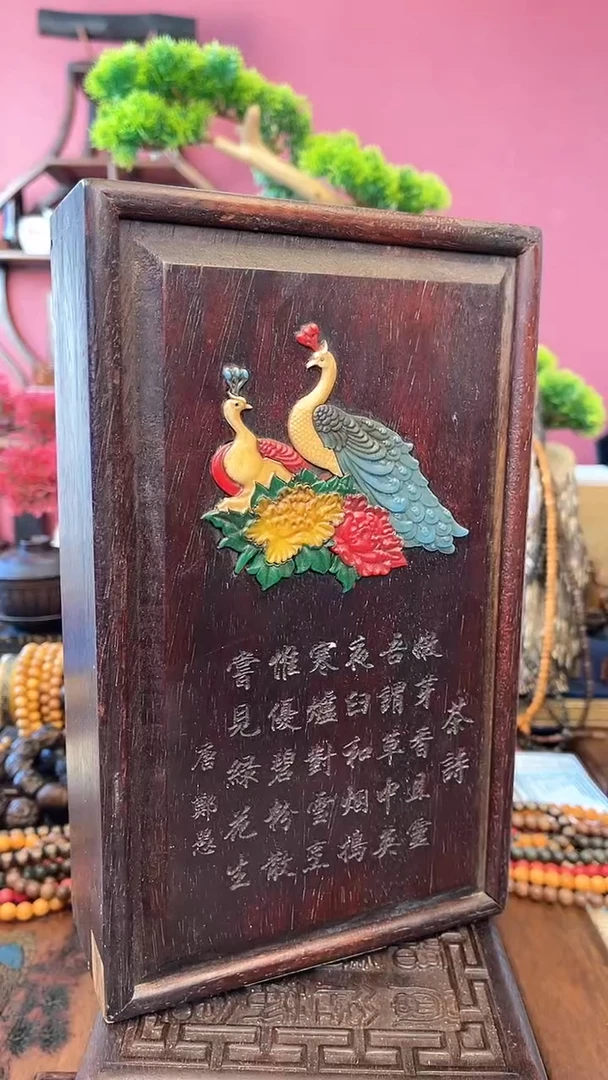 茶詩
嫩芽香且靈
吾謂草中英
夜臼和烟搗
寒爐對雪烹
惟優碧粉散
嘗見綠花生
唐鄭愚